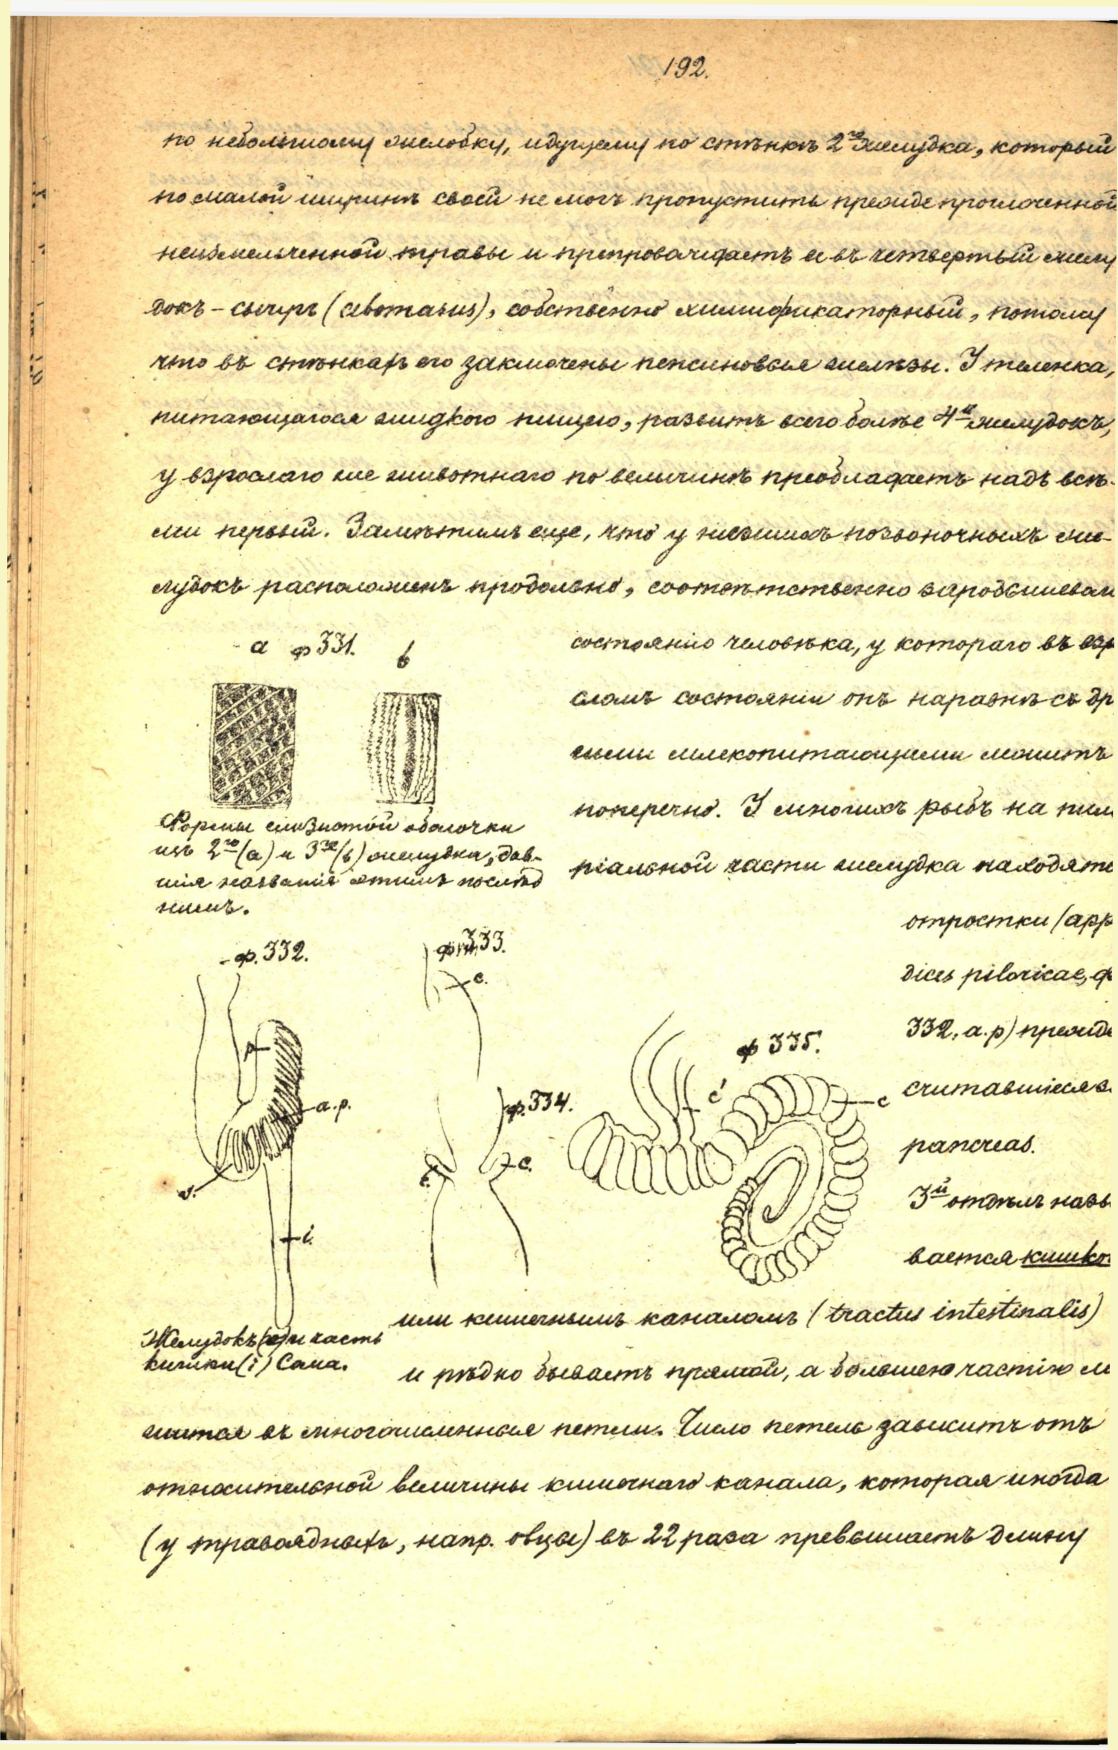 192.
по небольшому желобку, идущему по стѣнкѣ 2го желудка, который
по малой ширинѣ своей не могъ пропустить прежде проглоченной
неизмельченной травы и препровождаетъ ее въ четвертый желу
докъ – сычугъ (abomasus), собственно химификаторный, потому
что въ стѣнкахъ его заключены пепсиновыя железы. У теленка,
питающагося жидкою пищею, развитъ всего болѣе 4й желудокъ,
у взрослаго же животнаго по величинѣ преобладаетъ надъ всѣ-
ми первый. Замѣтимъ еще, что у низшихъ позвоночныхъ же-
лудокъ расположенъ продольно, соотвѣтственно зародышевом
а ф 331. b
состоянію человѣка, у котораго въ взр
сломъ состояніи онъ наравнѣ съ др
гими млекопитающими лежитъ
поперечно. У многихъ рыбъ на пил
ріальной части желудка находятс
Формы слизистой оболочки
изъ 2го (a) и 3го (b) желудка, дав-
шія названія этимъ послѣд
нимъ.
отростки (арр
dices piloricae, ф
332, a.p) прежде
считавшіеся з.
pancreas.
3й отдѣлъ назы
вается кишко
ф. 332.
ф. 333.
c.
a.p.
v.
i.
ф. 334.
c.
c.
ф 335.
c'
c
Желудокъ (v) и часть
кишки (i) Сома.
или кишечнымъ каналомъ (tractus intestinalis)
и рѣдко бываетъ прямой, а большею частію л
жится въ многочисленныя петли. Число петель зависитъ отъ
относительной величины кишечнаго канала, которая иногда
(у травоядныхъ, напр. овцы) въ 22 раза превышаетъ длину